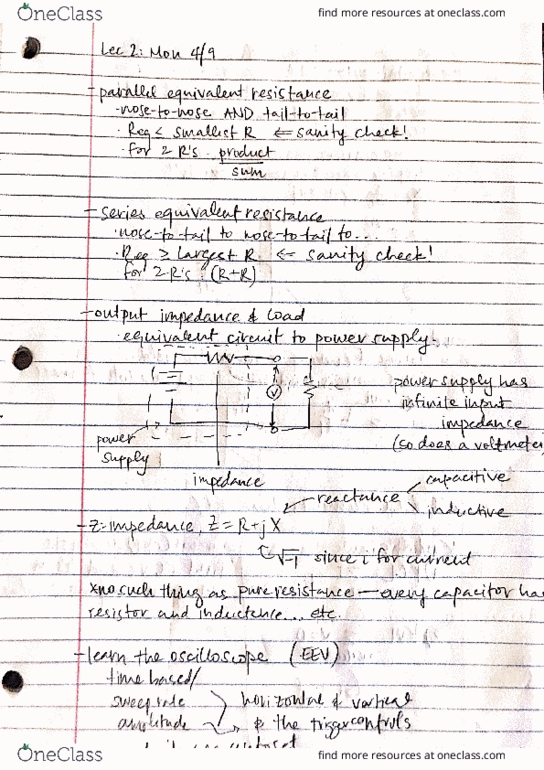 OneClass
find more resources at oneclass.com
Lec 2: Mon 4/9
- parallel equivalent resistance
· nose-to-nose AND tail-to-tail
· Req ≤ smallest R ⇐ sanity check!
· for 2 R's: product
sum
- series equivalent resistance
· nose-to-tail to nose-to-tail to...
· Req ≥ largest R ⇐ sanity check!
for 2 R's: (R+R)
- output impedance & load
· equivalent circuit to power supply:
V
power supply has
infinite input
impedance
(so does a voltmeter
power
supply
impedance
capacitive
reactance
inductive
- Z-impedance, Z = R + jX
√-1 since i for current
*no such thing as pure resistance — every capacitor has
resistor and inductance... etc.
- learn the oscilloscope (EEV)
time based/
sweep rate
horizontal & vertical
amplitude
& the trigger controls
OneClass
find more resources at oneclass.com